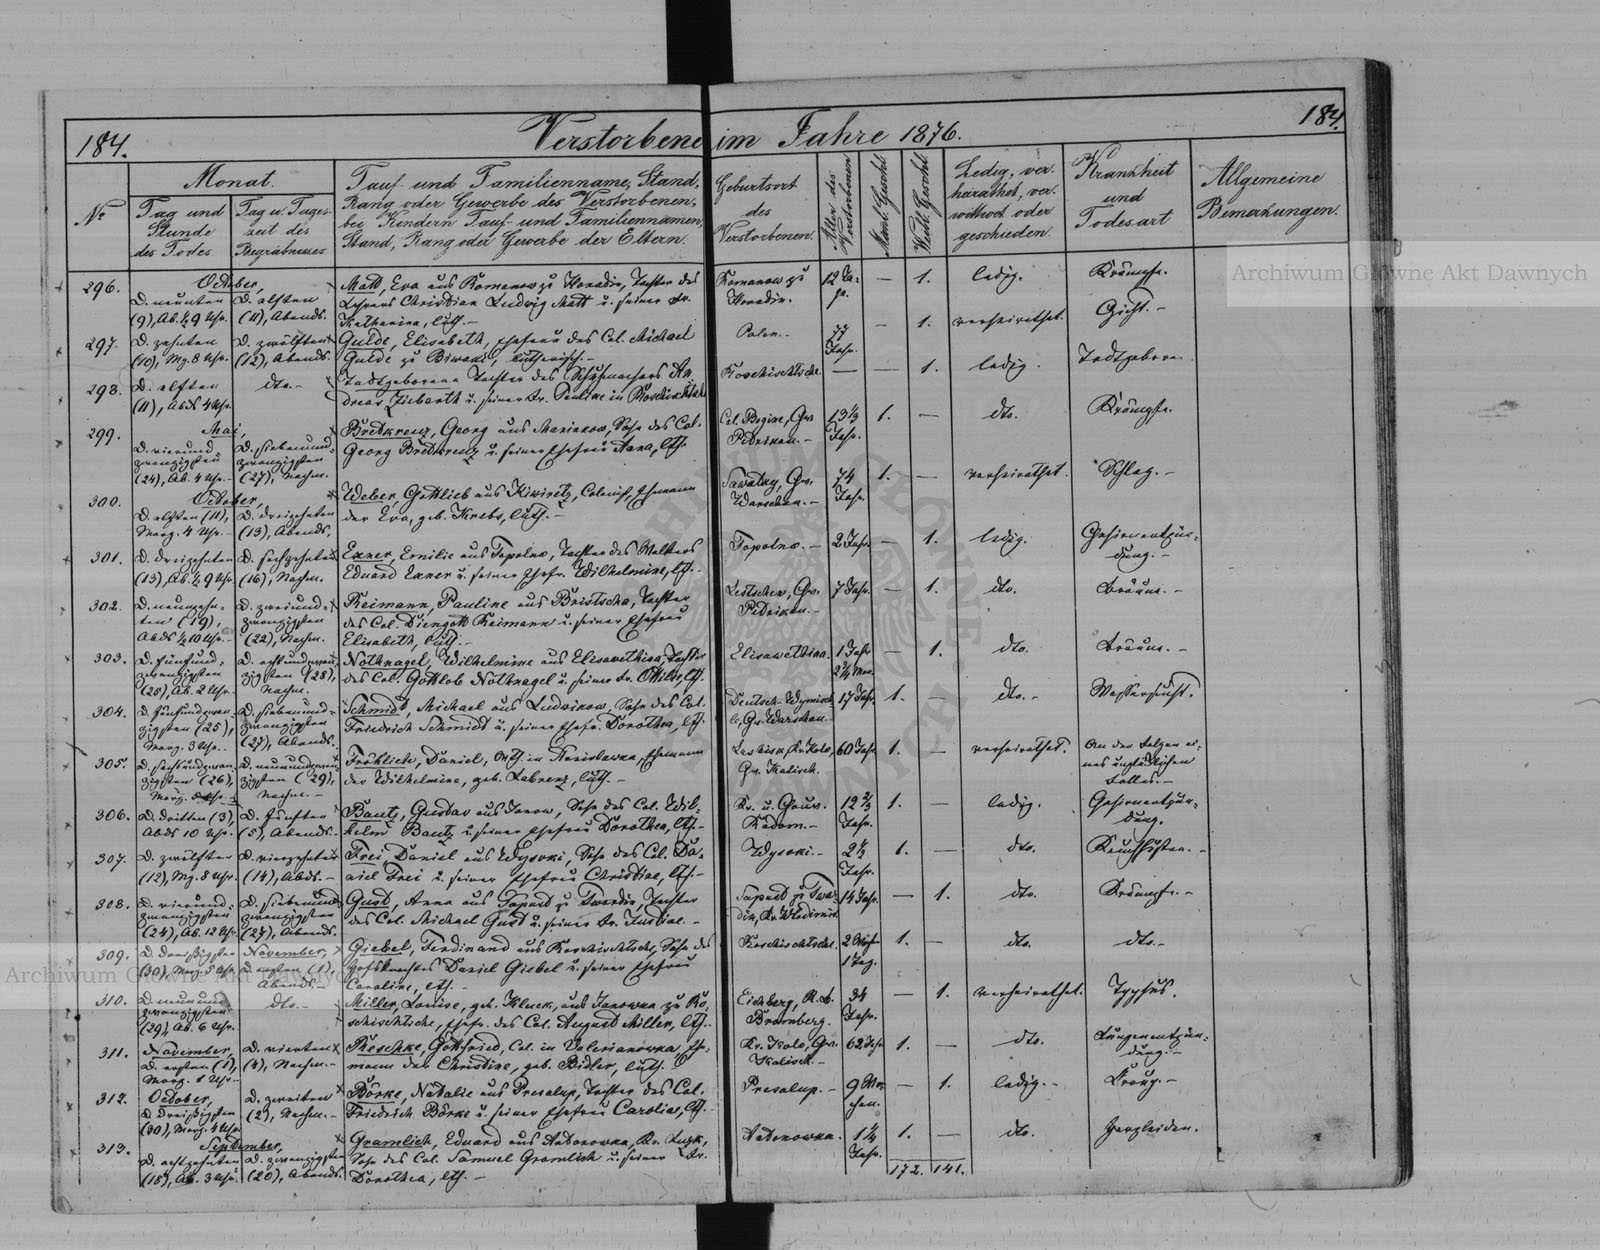 184.
Verstorbene im Jahre 1876.
184.
№
Monat.
Tag und Stunde des Todes
Tag u. Tageszeit des Begräbnisses
Tauf- und Familienname, Stand,
Rang oder Gewerbe des Verstorbenen,
bei Kindern Tauf- und Familiennamen,
Stand, Rang oder Gewerbe der Eltern.
Geburtsort
des
Verstorbenen.
Alter des Verstorbenen
Männl. Geschl.
Weibl. Geschl.
Ledig, ver-
heirathet, ver-
wittwet oder
geschieden.
Krankheit
und
Todesart
Allgemeine
Bemerkungen.
296.
October,
D. neunten
D. elften
(9), Ab. ½ 9 Uhr.
(11), Abends.
Matt, Eva aus Romanow zu Horodin, Tochter des
Lehrers Christian Ludwig Matt u. seiner Fr.
Katharina, luth. –
Romanow zu
Horodin.
12 Ta-
ge.
— 1.
ledig.
Krämpfe.
297.
D. zehnten
D. zwölften
(10), Mg. 8 Uhr.
(12), Abends.
Gulde, Elisabeth, Ehefrau des Col. Michael
Gulde zu
lutherisch. –
Polen.
77
Jahr.
— 1.
verheirathet.
Gicht. –
298.
D. elften
dto. –
(11), Abds 4 Uhr.
Todtgeborene Tochter des Schuhmachers An-
dreas
u. seiner Fr. Pauline in
Koschischtsche.
— — 1.
ledig.
Todtgeboren.
299.
Mai,
D. vierund-
zwanzigsten
(24), Ab. 4 Uhr. –
D. siebenund-
zwanzigsten
(27), Nachm.
Bredkrenz, Georg aus Marianow, Sohn des Col.
Georg Bredkrenz u. seiner Ehefrau Anna, lth.
Gv.
Petrikau. –
13 ½
Jahr.
1. —
dto.
Krämpfe.
300.
October,
D. elften (11),
Morg. 4 Uhr. –
D. dreizehnten
(13), Abends.
Weber, Gottlieb aus Kiwiretz, Colonist, Ehemann
der Eva, geb. Krebs, luth. –
Gv.
Warschau. –
74
Jahr.
1. —
verheirathet.
Schlag. –
301.
D. dreizehnten
(13), Ab. ½ 9 Uhr
D. sechzehnten
(16), Nachm.
Exner, Emilie aus Topolno, Tochter des
Eduard Exner u. seiner Ehefr. Wilhelmine, lth. –
Topolno. –
2 Jahr.
— 1.
ledig.
Gehirnentzün-
dung. –
302.
D. neunzehn-
ten (19),
Abds ½ 10 Uhr. –
D. zweiund-
zwanzigsten
(22), Nachm.
Reimann, Pauline aus Bristscha, Tochter
des Col. Reimann u. seiner Ehefrau
Elisabeth, luth. –
Gv.
Petrikau. –
7 Jahr.
— 1.
dto.
Bräune. –
303.
D. fünfund-
zwanzigsten
(25), Ab. 2 Uhr. –
D. achtundzwan-
zigsten (28),
Nachm.
Nothnagel, Wilhelmine aus Elisawethina, Tochter
des Col. Gottlob Nothnagel u. seiner Fr. Ottilie, lth.
Elisawethina.
1 Jahr
2 ½ Mon.
— 1.
dto.
Bräune. –
304.
D. fünfundzwan-
zigsten (25),
Morg. 3 Uhr. –
D. siebenund-
zwanzigsten
(27), Abends.
Schmidt, Michael aus Ludwikow, Sohn des Col.
Friedrich Schmidt u. seiner Ehefr. Dorothea, lth.
Gv. Warschau.
17 Jahr.
1. —
dto. –
Wassersucht.
305.
D. sechsundzwan-
zigsten (26),
Morg. Uhr. –
D. neunundzwan-
zigsten (29),
Nachm. –
Fröhlich, Daniel, in Ehemann
der Wilhelmine, geb. Labrenz, luth. –
Kr. Kolo,
Gv. Kalisch.
60 Jahr.
1. —
verheirathet.
An den Folgen ei-
nes unglücklichen
Falles. –
306.
D. dritten (3),
Abds 10 Uhr. –
D. fünften
(5), Abends. –
Bautz, Gustav aus Sohn des Col. Wil-
helm Bautz u. seiner Ehefrau Dorothea, lth. –
Kr. u. Gouv.
Radom. –
12 ⅔
Jahr.
1. —
ledig.
Gehirnentzün-
dung.
307.
D. zwölften
(12), Mg. 8 Uhr.
D. vierzehnten
(14), Abds. –
Frei, Daniel aus Wysoki, Sohn des Col. Da-
niel Frei u. seiner Ehefrau Christine, lth. –
Wysoki. –
2 ½
Jahr.
1. —
dto.
Keuchhusten. –
308.
D. vierund-
zwanzigsten
(24), Ab. 12 Uhr.
D. siebenund-
zwanzigsten
(27), Abends.
Gust, Anna aus zu Tochter
des Col. Michael Gust u. seiner Fr. Justine. –
14 Jahr.
— 1.
dto.
Krämpfe. –
309.
D. dreißigsten
(30), Morg. 5 Uhr.
November,
D. ersten (1),
Abends. –
Giebel, Ferdinand aus Koschischtsche, Sohn des
Daniel Giebel u. seiner Ehefrau
Caroline, lth. –
Koschischtsche.
2 Woch.
1 Tag.
1. —
dto.
dto. –
310.
D. neunund-
zwanzigsten
(29), Ab. 6 Uhr.
dto. –
Miller, Louise, geb. Kluck, aus Janowka zu Ko-
schischtsche, Ehefr. des Col. August Miller, lth. –
Eichberg, R.-B.
Bromberg.
34
Jahr.
— 1.
verheirathet.
Typhus.
311.
November,
D. ersten (1),
Morg. 1 Uhr. –
D. vierten
(4), Nachm. –
Reschke, Gottfried, Col. in Valerianowka, Ehe-
mann der Christine, geb. Bidler, luth. –
Kr. Kolo, Gv.
Kalisch. –
62 Jahr
1. —
dto.
Lungenentzün-
dung. –
312.
October,
D. dreißigsten
(30), Morg. 4 Uhr.
D. zweiten
(2), Nachm. –
Börke, Natalie aus Presalup, Tochter des Col.
Friedrich Börke u. seiner Ehefrau Carolin, lth. –
Presalup. –
9 Wo-
chen.
— 1.
ledig. –
313.
September,
D. achtzehnten
(18), Ab. 3 Uhr.
D. zwanzigsten
(20), Abends.
Gramlich, Eduard aus Antonowka, Kr. Luzk,
Sohn des Col. Samuel Gramlich u. seiner Fr.
Dorothea, lth. –
Antonowka.
1 ¼
Jahr.
1. —
dto.
Herzleiden.
172. 141.
Archiwum Główne Akt Dawnych
Archiwum Główne Akt Dawnych